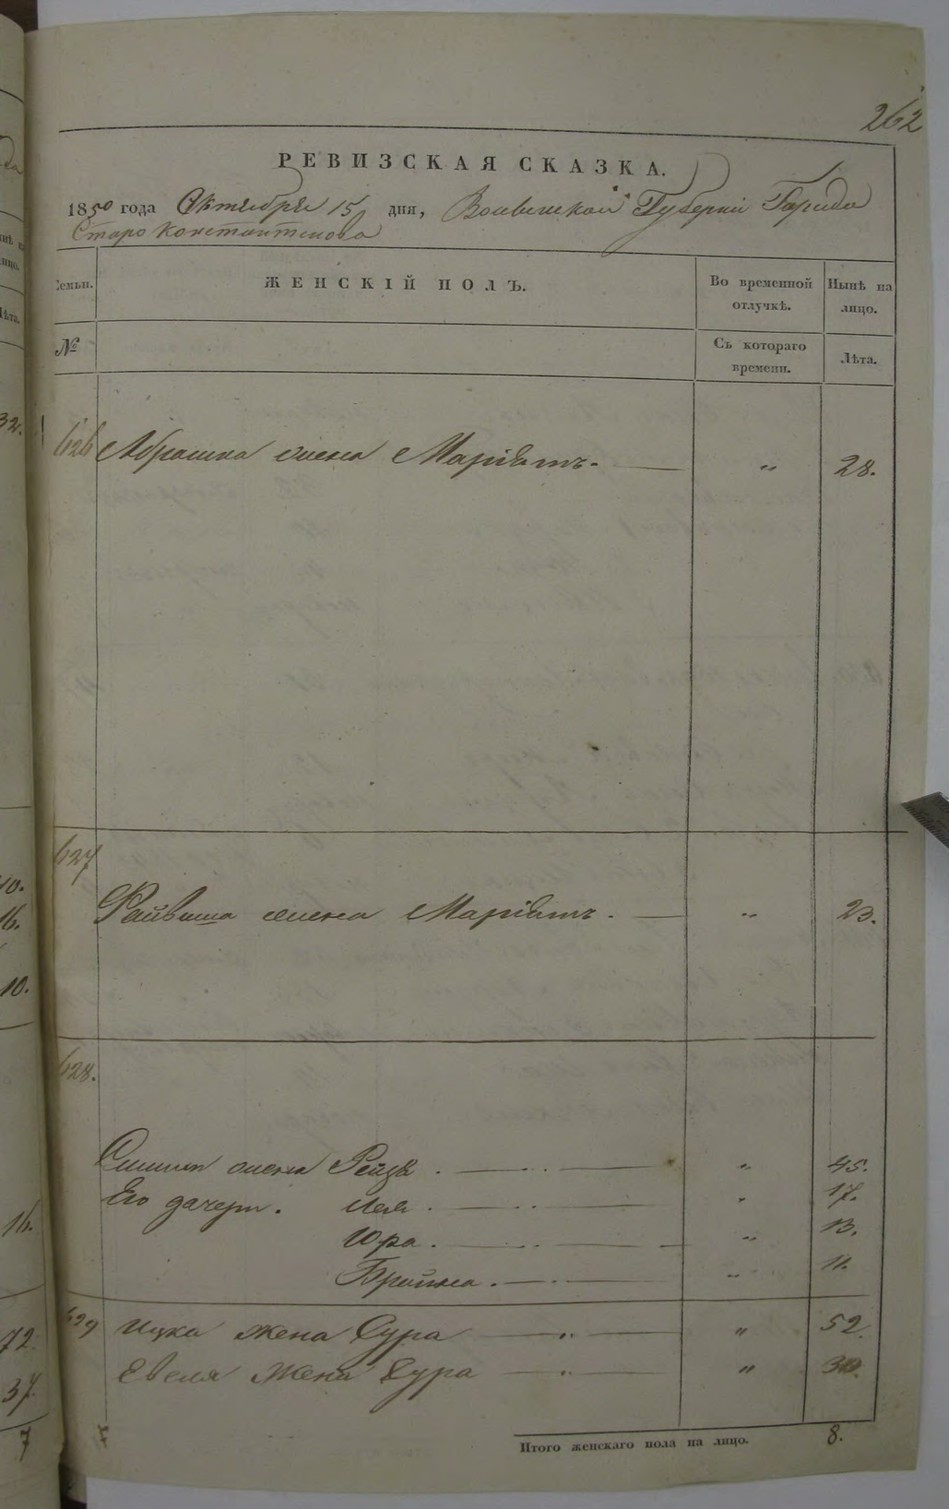 262
РЕВИЗСКАЯ СКАЗКА.
1850 года Октября 15 дня, Волынской Губерніи Города
Старо Константинова
Семьи. ЖЕНСКІЙ ПОЛЪ. Во временной отлучкѣ. Нынѣ на лицо.
№ Съ котораго времени. Лѣта.
626 Абрашка жена Маріямъ. — " 28.
627
Файвиша жена Маріямъ. — " 23.
628.
жена Рейзя. — " 45.
Его дачери. Лея. — " 17.
Юра. — " 13.
Брайна. — " 11.
629 Ицка жена Сура — " 52.
Евеля жена Сура — " 30.
Итого женскаго пола на лицо. 8.
32.
10.
16.
10.
16.
72.
37.
7